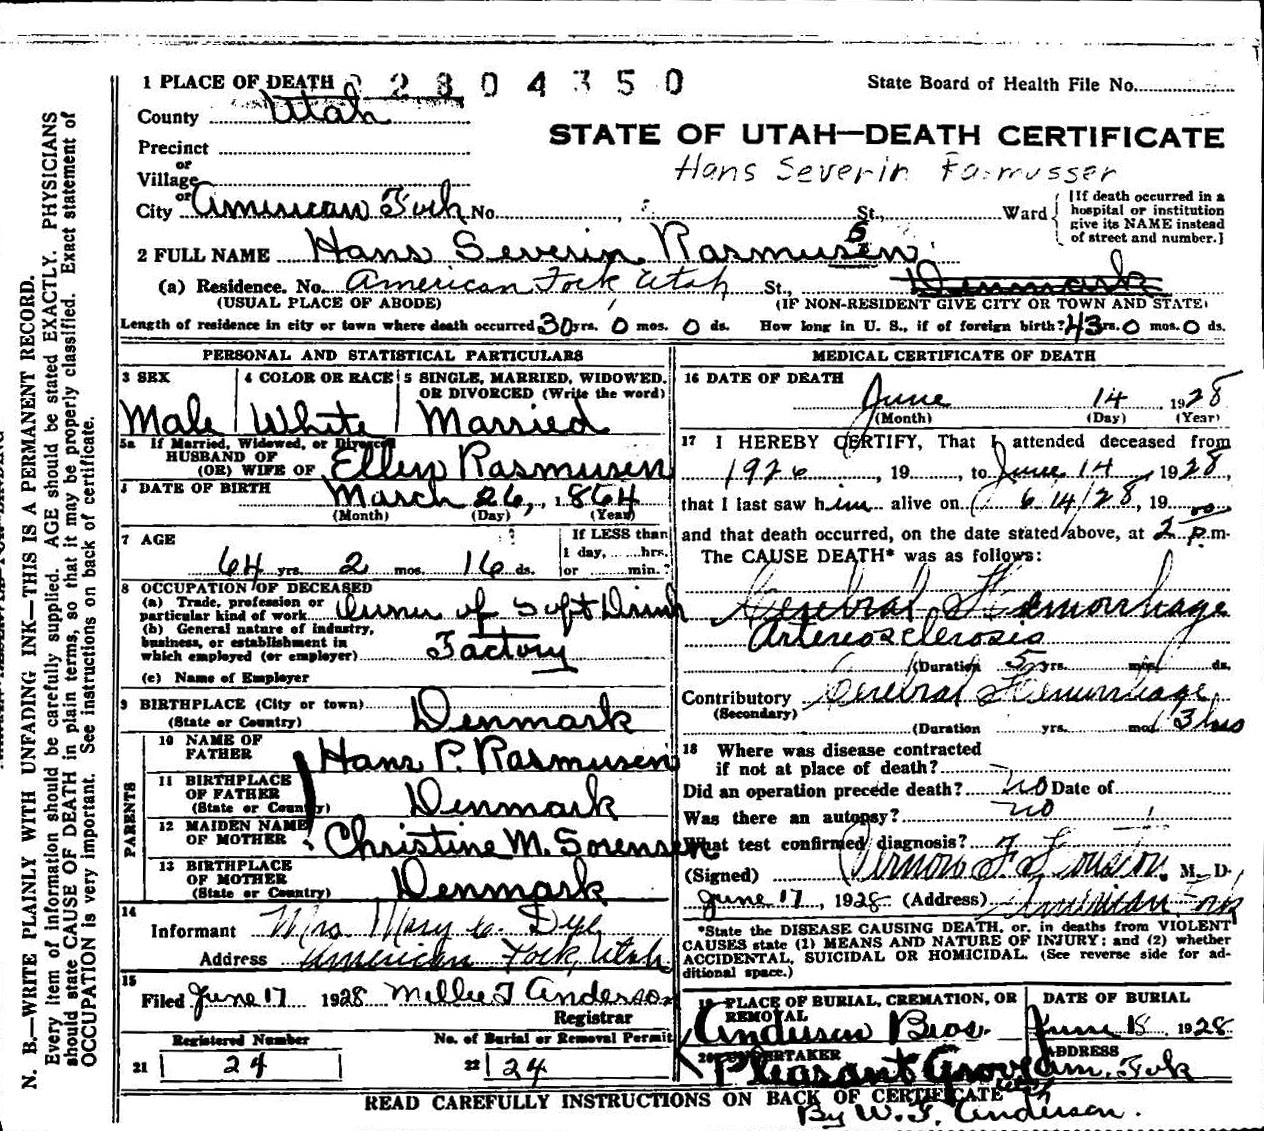 1 PLACE OF DEATH 2804350 State Board of Health File No.
County Utah
STATE OF UTAH—DEATH CERTIFICATE
Precinct
Hans Severin Rasmusser
or
Village
or
City American Fork No. St., Ward
[If death occurred in a hospital or institution give its NAME instead of street and number.]
2 FULL NAME Hans Severin Rasmusen
s
(a) Residence. No. American Fork Utah St., Denmark
(USUAL PLACE OF ABODE) (IF NON-RESIDENT GIVE CITY OR TOWN AND STATE)
Length of residence in city or town where death occurred 30 yrs. 0 mos. 0 ds. How long in U. S., if of foreign birth? 43 yrs. 0 mos. 0 ds.
PERSONAL AND STATISTICAL PARTICULARS
3 SEX 4 COLOR OR RACE 5 SINGLE, MARRIED, WIDOWED, OR DIVORCED (Write the word)
Male White Married
5a If Married, Widowed, or Divorced
HUSBAND OF
(OR) WIFE OF Ellen Rasmusen
DATE OF BIRTH March 26, 1864
(Month) (Day) (Year)
7 AGE If LESS than
1 day, hrs.
64 yrs. 2 mos. 16 ds. or min.?
8 OCCUPATION OF DECEASED
(a) Trade, profession or
particular kind of work Owner of Soft Drink
(b) General nature of industry,
business, or establishment in
which employed (or employer) Factory
(c) Name of Employer
9 BIRTHPLACE (City or town)
(State or Country) Denmark
PARENTS
10 NAME OF
FATHER Hans P. Rasmusen
11 BIRTHPLACE
OF FATHER
(State or Country) Denmark
12 MAIDEN NAME
OF MOTHER Christine M. Sorensen
13 BIRTHPLACE
OF MOTHER
(State or Country) Denmark
14
Informant Mrs Mary C. Dye
Address American Fork, Utah
15
Filed June 17 1928 Millie T Anderson
Registrar
Registered Number No. of Burial or Removal Permit
21 24 22 24
MEDICAL CERTIFICATE OF DEATH
16 DATE OF DEATH
June 14 1928
(Month) (Day) (Year)
17 I HEREBY CERTIFY, That I attended deceased from
1926, 19, to June 14 1928,
that I last saw him alive on 6/14/28, 19
and that death occurred, on the date stated above, at 2 00 p.m.
The CAUSE DEATH* was as follows:
Cerebral Hemorrhage
Arteriosclerosis
(Duration 5 yrs. mos. ds.
Contributory Cerebral Hemorrhage
(Secondary)
(Duration yrs. mos 13 hrs
18 Where was disease contracted
if not at place of death?
Did an operation precede death? no Date of
Was there an autopsy? no
What test confirmed diagnosis?
(Signed) Vernon F. Houston. M. D.
June 17, 1928 (Address) American Fork
*State the DISEASE CAUSING DEATH, or, in deaths from VIOLENT
CAUSES state (1) MEANS AND NATURE OF INJURY; and (2) whether
ACCIDENTAL, SUICIDAL OR HOMICIDAL. (See reverse side for ad-
ditional space.)
19 PLACE OF BURIAL, CREMATION, OR REMOVAL DATE OF BURIAL
Anderson Bros. June 18 1928
20 UNDERTAKER ADDRESS
Pleasant Grove Utah Am. Fork
READ CAREFULLY INSTRUCTIONS ON BACK OF CERTIFICATE
By W. F. Anderson.
N. B.—WRITE PLAINLY WITH UNFADING INK—THIS IS A PERMANENT RECORD.
Every item of information should be carefully supplied. AGE should be stated EXACTLY. PHYSICIANS
should state CAUSE OF DEATH in plain terms, so that it may be properly classified. Exact statement of
OCCUPATION is very important. See instructions on back of certificate.